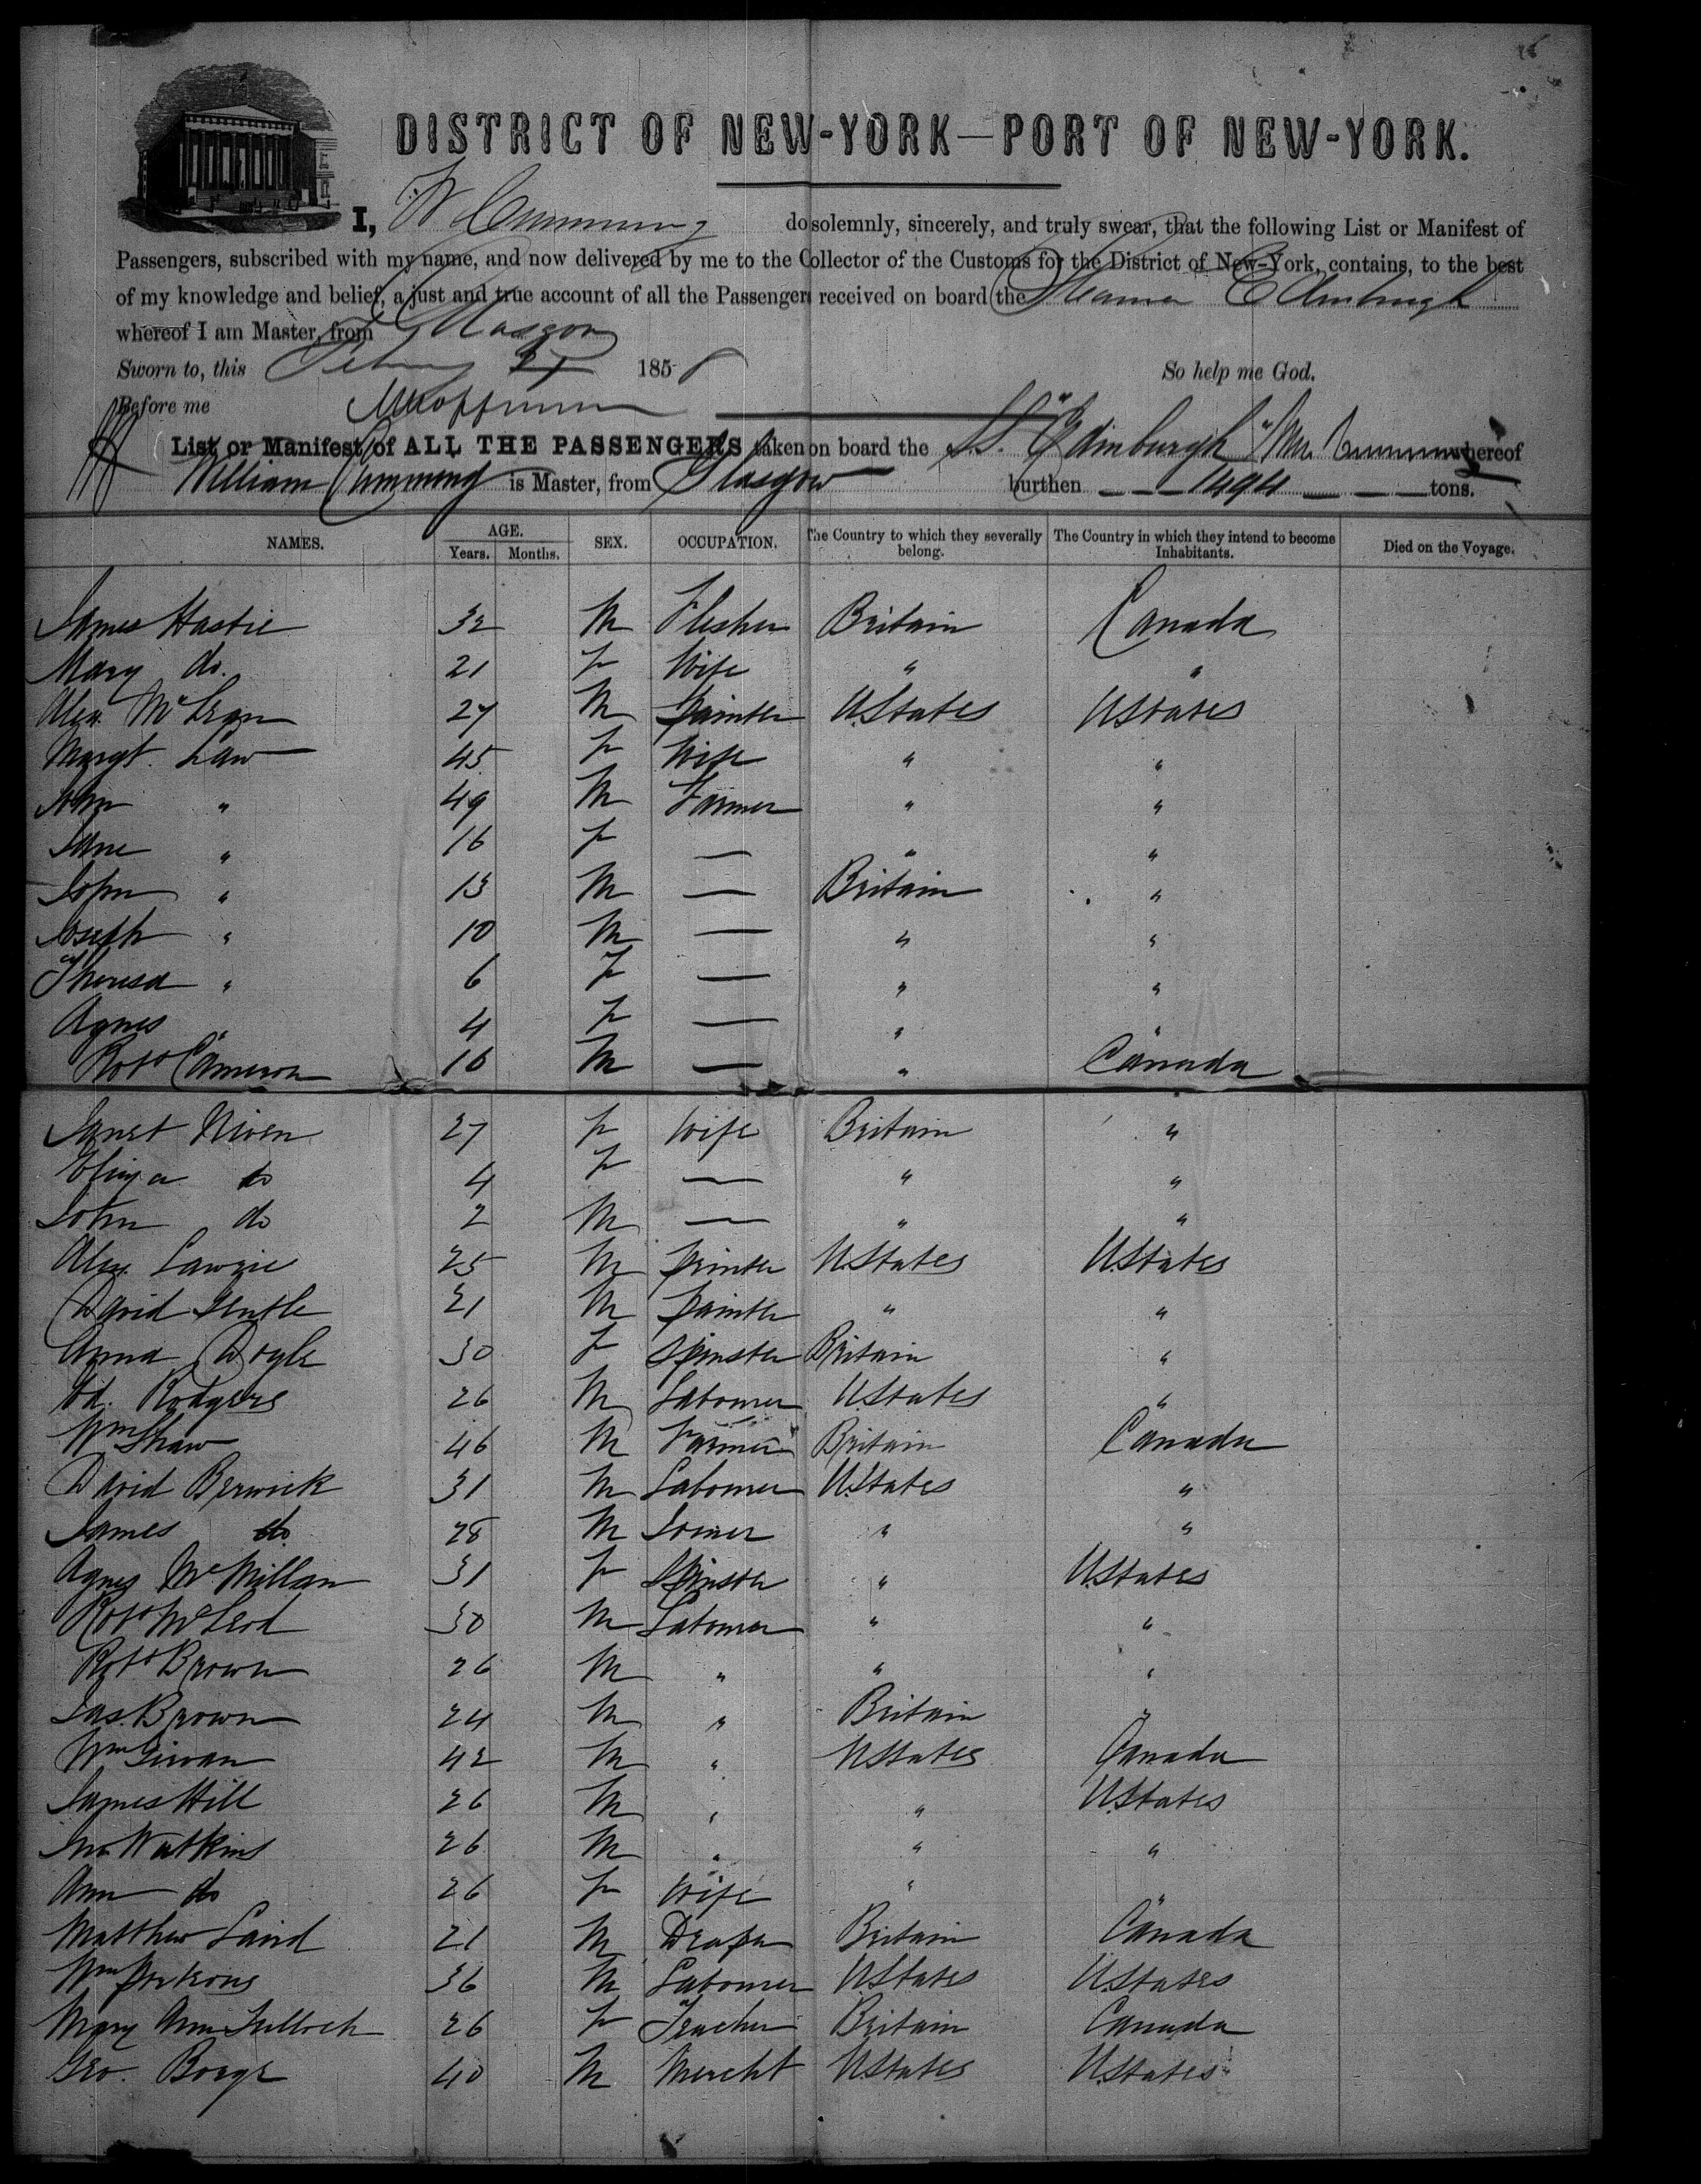 DISTRICT OF NEW-YORK—PORT OF NEW-YORK.
I, W Cumming do solemnly, sincerely, and truly swear, that the following List or Manifest of
Passengers, subscribed with my name, and now delivered by me to the Collector of the Customs for the District of New-York, contains, to the best
of my knowledge and belief, a just and true account of all the Passengers received on board the Steamer Edinburgh
whereof I am Master, from Glasgow
Sworn to, this 185 So help me God.
Before me
List or Manifest of ALL THE PASSENGERS taken on board the S.S. "Edinburgh" whereof
William Cumming is Master, from Glasgow burthen 1494 tons.
NAMES. AGE. Years. Months. SEX. OCCUPATION. The Country to which they severally belong. The Country in which they intend to become Inhabitants. Died on the Voyage.
James Hastie 32 M Flesher Britain Canada
Mary do. 21 F Wife " "
Alex. McLean 27 M Painter U.States U.States
Margt. Law 45 F Wife " "
John " 49 M Farmer " "
Jane " 16 F — " "
John " 13 M — Britain "
Joseph " 10 M — " "
Theresa " 6 F — " "
Agnes " 4 F — " "
Robt Cameron 16 M — " Canada
Janet Niven 27 F Wife Britain "
do 4 F — " "
John do 2 M — " "
Alex. Lawrie 25 M Printer U.States U.States
David Gentle 21 M Painter " "
Anna Doyle 30 F Spinster Britain "
Ed. Rodgers 26 M Labourer U.States "
Wm Shaw 46 M Farmer Britain Canada
David Berwick 31 M Labourer U.States "
James do. 28 M Joiner " "
Agnes McMillan 31 F Spinster " U.States
Robt McLeod 30 M Labourer " "
Robt Brown 26 M " " "
Jas. Brown 24 M " Britain "
Wm Girvan 42 M " U.States Canada
James Hill 26 M " " U.States
Jno Watkins 26 M " " "
Ann do 26 F Wife " "
Matthew Laird 21 M Draper Britain Canada
Wm 36 M Labourer U.States U.States
Mary Ann Tulloch 26 F Teacher Britain Canada
Geo. Bogge 40 M Mercht U.States U.States